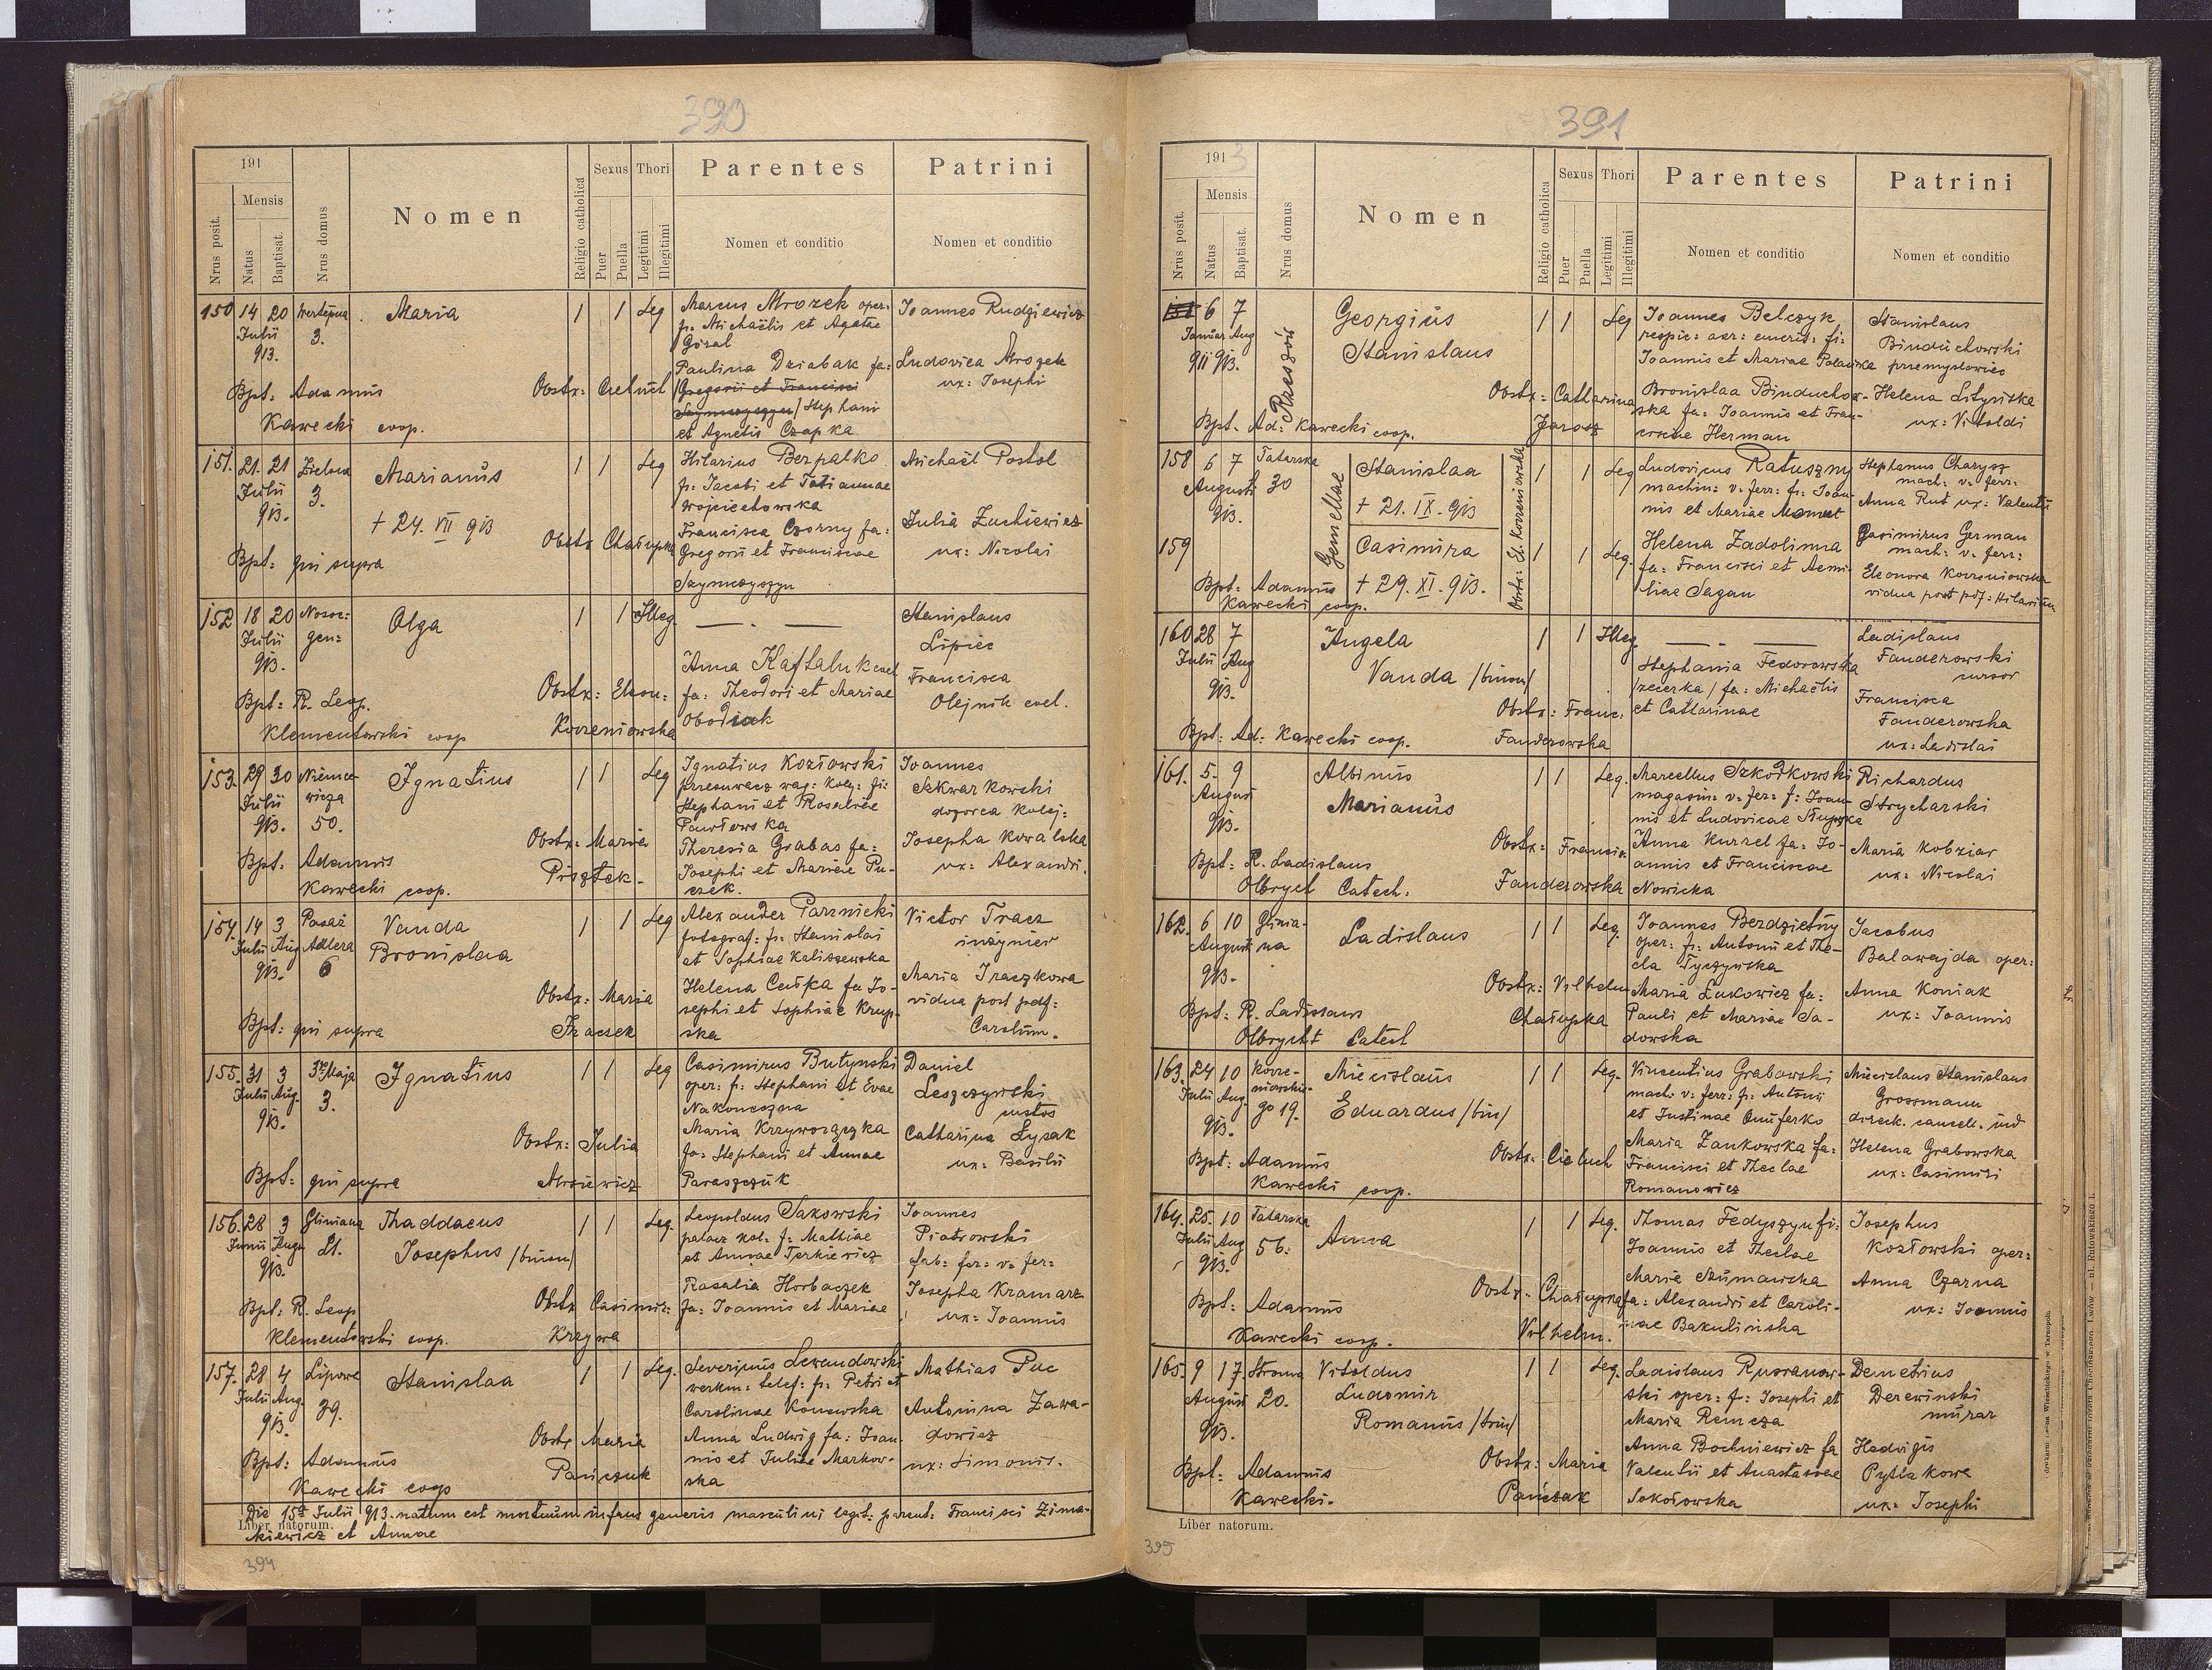 390
191
Nrus posit.
Mensis
Natus
Baptisat.
Nrus domus
Nomen
Religio catholica
Sexus
Puer
Puella
Thori
Legitimi
Illegitimi
Parentes
Nomen et conditio
Patrini
Nomen et conditio
150 14 20 Maria 1 1 Leg Marcus Mrozek oper: Joannes Rudziewicz
Julii 3. fi: Michaëlis et Agatae
913. Góral
Paulina Dziabak fa: Ludovica Mrozek
Bpt: Adamus Obstx: Cieluch Gregorii et Francisci ux: Josephi
Szymczyszyn / Stephani
Kawecki coop. et Agnetis Czapka
151. 21. 21 Zielona Marianus 1 1 Leg Hilarius Berpalko Michaël Postol
Julii 3. fi: Jacobi et Tatiannae
913. Wojciechowska
+ 24. VII 913 Francisca Czorny fa: Julia Zuckiewicz
Bpt: qui supra Obstx Chałupka Gregorii et Franciscae ux: Nicolai
Szymczyszyn
152 18 20 Nosoc: Olga 1 1 Illeg — . — Stanislaus
Julii gen: Lipiec
913. Anna Kaftaluk Francisca
Bpt: R. Leop. Obstx: Eleon: fa: Theodori et Mariae Olejnik
Klementowski coop Korzeniowska Obodiak
153. 29 30 Niemce- Ignatius 1 1 Leg Ignatius Kozłowski Joannes
Julii wicza przesuwacz wag: kolej: fi: Sekwarkowski
913. 50. Stephani et Rosaliae dozorca kolej:
Pawłowska
Bpt: Adamus Obstx: Maria Theresia Grabas fa: Josepha Kowalska
Kawecki coop. Pisztek. Josephi et Mariae Pu- ux: Alexandri.
czek.
154. 14 3 Pasaż Vanda 1 1 Leg Alexander Parznicki Victor Tracz
Julii Aug Adlera Bronislaa fotograf: fi: Stanislai inżynier
913. 6 et Sophiae Kaliszewska
Obstx: Maria Helena Cuśka fa Jo- Maria Traczkowa
sephi et Sophiae Krup- vidua post pdf:
Bpt: qui supra Fraczek ska Carolum.
155. 31 3 3º Maja Ignatius 1 1 Leg Casimirus Butynski Daniel
Julii Aug. 3. oper: fi: Stephani et Evae Leszczynski
913. Nakoneczna custos
Obstx: Julia Maria Krzyworączka Catharina Łysak
fa: Stephani et Annae ux: Basilii
Bpt: qui supra Mroziewicz Paraszczuk
156. 28 3 Gliniana Thaddaeus 1 1 Leg. Leopoldus Sakowski Joannes
Junii Augu 21. Josephus /binom/ palacz kol: f: Mathiae Piatrowski
913. et Annae Terkiewicz fab: fer: v= fer:
Rosalia Horbaczek Josepha Kramarz
Bpt: R. Leop Obstx Casimir: fa: Joannis et Mariae ux: Joannis
Klementowski coop. Krzywa
157. 28 4 Lipowa Stanislaa 1 1 Leg. Severinus Lewandowski Mathias Puc
Julii Aug. 39. werkm: telef: fi: Petri et
913. Carolinae Konewska Antonina Zawa-
Obstx Maria Anna Ludwig fa: Joan- dowicz
Bpt: Adamus Pańczuk nis et Juliae Markow- ux: Simonis.
Kawecki coop ska
Die 15ta Julii 913. natum est mortuum infans generis masculini legit: parent: Francisci Zima-
Liber natorum.
kiewicz et Annae
394
391
1913
Nrus posit.
Mensis
Natus
Baptisat.
Nrus domus
Nomen
Religio catholica
Sexus
Puer
Puella
Thori
Legitimi
Illegitimi
Parentes
Nomen et conditio
Patrini
Nomen et conditio
6 7 Rzeszów Georgius 1 1 Leg Joannes Belczyk Stanislaus
Januar Aug Stanislaus respic: aer: emerit: fi: Binduchowski
911 913. Joannis et Mariae przemysłowiec
Obstx: Catharina Bronislaa Binduchow- Helena Lityńska
ska fa: Joannis et Fran- ux: Vitoldi
Bpt. Ad: Kawecki coop. Jarosz ciscae Herman
158 6 7 Tatarska Gemellae Stanislaa Obstx: El. Korzeniowska 1 1 Leg Ludovicus Ratuszny Stephanus Charysz
Augusti 30 + 21. IX. 913 machin: v: ferr: fi: Joan- mach: v: ferr:
913. nis et Mariae Mamut Anna Rut ux: Valentii
159 Casimira 1 1 Leg. Helena Zadolinna Casimirus German
+ 29. XI. 913. fa: Francisci et Aemi- mach: v: ferr:
Bpt: Adamus liae Sagan Eleonora Korzeniowska
Kawecki coop. vidua post pdf: Hilarium
160 28 7 Angela 1 1 Illeg — . — Ladislaus
Julii Aug Vanda /binom/ Stephania Fedorowska Fanderowski
913. /zecerka/ fa: Michaëlis cursor
Obstx: Franc. et Catharinae Francisca
Bpt: Ad: Kawecki coop. Fanderowska Fanderowska
ux: Ladislai
161. 5. 9 Albinus 1 1 Leg. Marcellus Szkodkowski Richardus
Augusti Marianus magasin: v: fer: f: Joan- Strycharski
913. nis et Ludovicae Słupska
Obstx: Francis. Anna Kurzel fa: Jo- Maria Kobziar
Bpt: R. Ladislaus annis et Franciscae ux: Nicolai
Olbrycht Catech. Fanderowska Nowicka
162. 6 10 Glinia- Ladislaus 1 1 Leg. Joannes Berdzietny Jacobus
Augusti na oper: fi: Antonii et The- Balawajda oper:
913. cla Tyczynska
Obstx: Vilhelm Maria Lukowicz fa: Anna Koniak
Bpt: R. Ladislaus Chałupka Pauli et Mariae Sa- ux: Joannis
Olbrycht Catech dowska
163. 24 10 Korze- Miecislaus 1 1 Leg. Vincentius Grabowski Miecislaus Stanislaus
Julii Aug niowskie- Eduardus /bin/ mach: v: ferr: fi: Antonii Grossmann
913. go 19. et Justinae Onuferko direck. cancell. ind
Bpt: Adamus Obstx: Cieluch Maria Zankowska fa: Helena Grabowska
Kawecki coop. Francisci et Theclae ux: Casimiri
Romanowicz
164. 25. 10 Tatarska Anna 1 1 Leg. Thomas Fedyszyn fi: Josephus
Julii Aug 56. Joannis et Theclae Kozłowski oper:
913. Maria Szumanska Anna Czarna
Bpt: Adamus Obstx. Chałupka fa: Alexandri et Caroli- ux: Joannis
Kawecki coop. Vilhelm. nae Bakulińska
165. 9 17 Stroma Vitoldus 1 1 Leg. Ladislaus Rusranow- Demetrius
Augusti 20. Ludomir ski oper: f: Josephi et Derewinski
913. Romanus /trin/ Maria Remcza murar
Anna Bochniewicz fa Hedvigis
Bpt: Adamus Obstx: Maria Valentii et Anastasiae Pytlakowa
Kawecki. Pańczak Sokołowska ux: Josephi
Liber natorum.
395